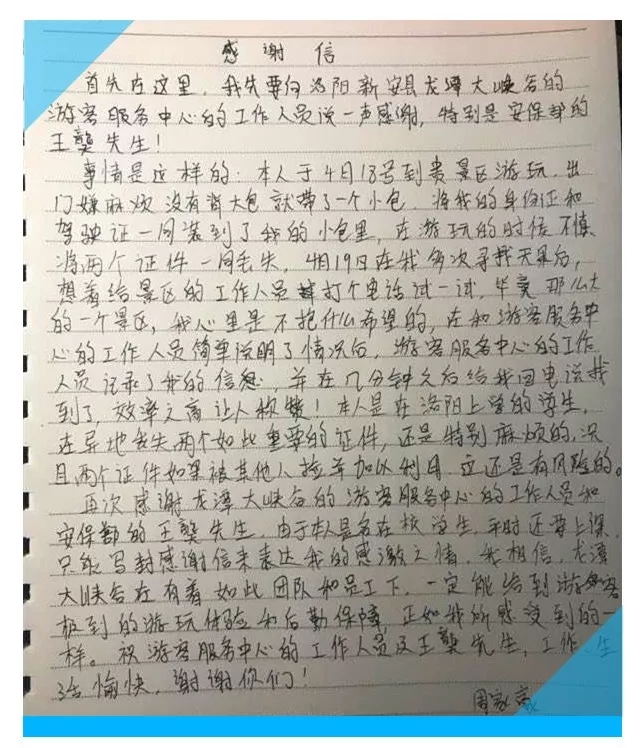 感谢信
首先在这里,我先要向洛阳新安县龙潭大峡谷的
游客服务中心的工作人员说一声感谢,特别是安保部的
王龑先生!
事情是这样的:本人于4月18号到贵景区游玩,出
门嫌麻烦没有背大包就带了一个小包,将我的身份证和
驾驶证一同装到了我的小包里,在游玩的时候不慎
将两个证件一同丢失,4月19日在我多次寻找无果后,
想着给景区的工作人员打个电话试一试,毕竟那么大
的一个景区,我心里是不抱什么希望的,在和游客服务中
心的工作人员简单说明了情况后,游客服务中心的工作
人员记录了我的信息,并在几分钟之后给我回电说找
到了,效率之高让人称赞!本人是在洛阳上学的学生,
在异地丢失两个如此重要的证件,还是特别麻烦的,况
且两个证件如果被其他人捡走加以利用,这还是有风险的。
再次感谢龙潭大峡谷的游客服务中心的工作人员和
安保部的王龑先生,由于本人是名在校学生,平时还要上课,
只能写封感谢信来表达我的感激之情,我相信,龙潭
大峡谷在有着如此团队和员工下,一定能给到游客
极到的游玩体验和后勤保障,正如我所感受到的一
样。祝游客服务中心的工作人员及王龑先生,工作、生
活愉快,谢谢你们!
周家